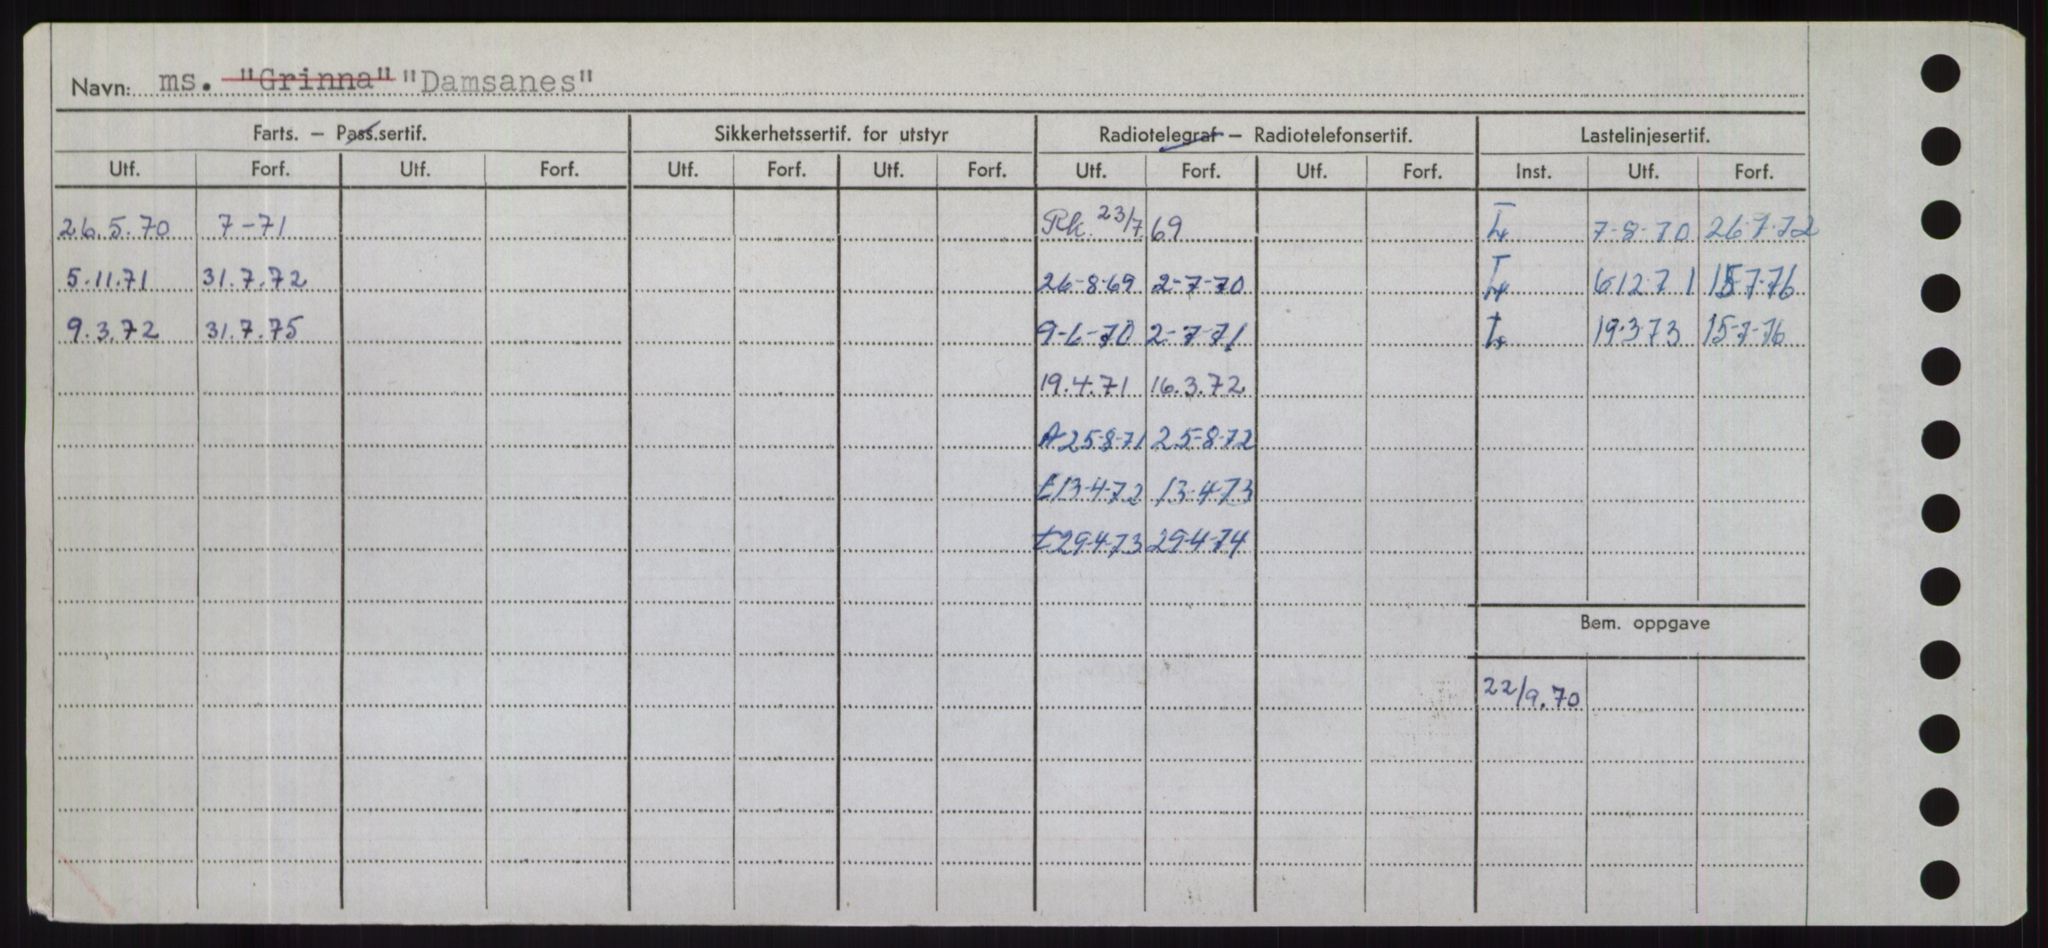 Navn: ms. "Grinna" "Damsanes"
Farts. – Pass.sertif. Sikkerhetssertif. for utstyr Radiotelegraf – Radiotelefonsertif. Lastelinjesertif.
Utf. Forf. Utf. Forf. Utf. Forf. Utf. Forf. Utf. Forf. Utf. Forf. Inst. Utf. Forf.
26.5.70 7-71 Rk. 23/7.69 7-8-70 26-7-72
5.11.71 31.7.72 26-8-69 2-7-70 6127 1 15-7-76
9.3.72 31.7.75 9-6-70 2-7-71 19-3-73 15-7-76
19.4.71 16.3.72
A 25-8-71 25-8-72
E 13-4-72 13-4-73
29-4-73 29-4-74
Bem. oppgave
22/9.70